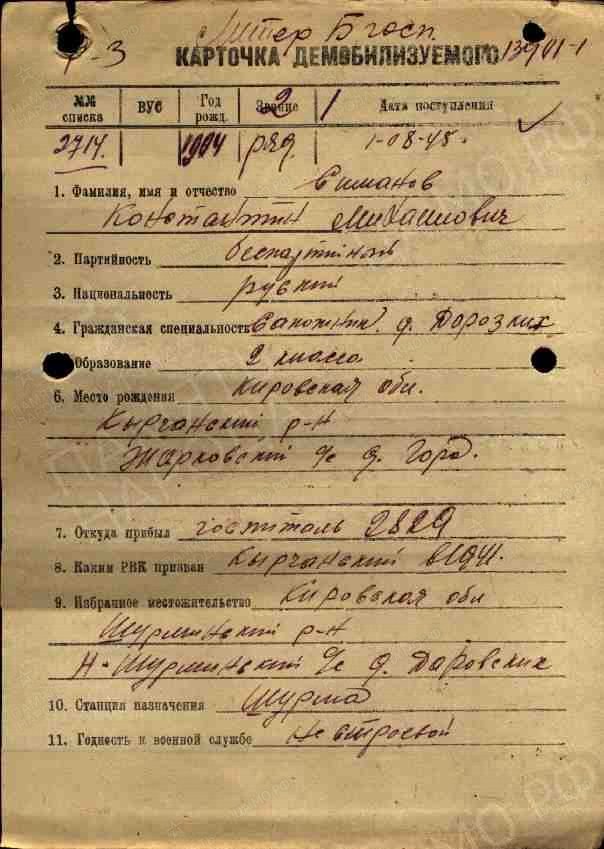 Литер Б госп.
Р-3 КАРТОЧКА ДЕМОБИЛИЗУЕМОГО 13901-1
№№ списка ВУС Год рожд. Звание 2 1 Дата поступления
2714. 1904 ряд. 1-08-45.
1. Фамилия, имя и отчество Симанов
Константин Михаилович
2. Партийность беспартийный
3. Национальность руский
4. Гражданская специальность Сапожник. д. Дорозких
Образование 2 класса
6. Место рождения Кировская обл.
Кырчанский р-н
Жарковский с/с д. Гора.
7. Откуда прибыл госпиталь 2829
8. Каким РВК призван Кырчанский в 1941.
9. Избранное местожительство Кировская обл
Шурминский р-н
Н-Шурминский с/с д. Даровских
10. Станция назначения Шурма
11. Годность к военной службе не строевой